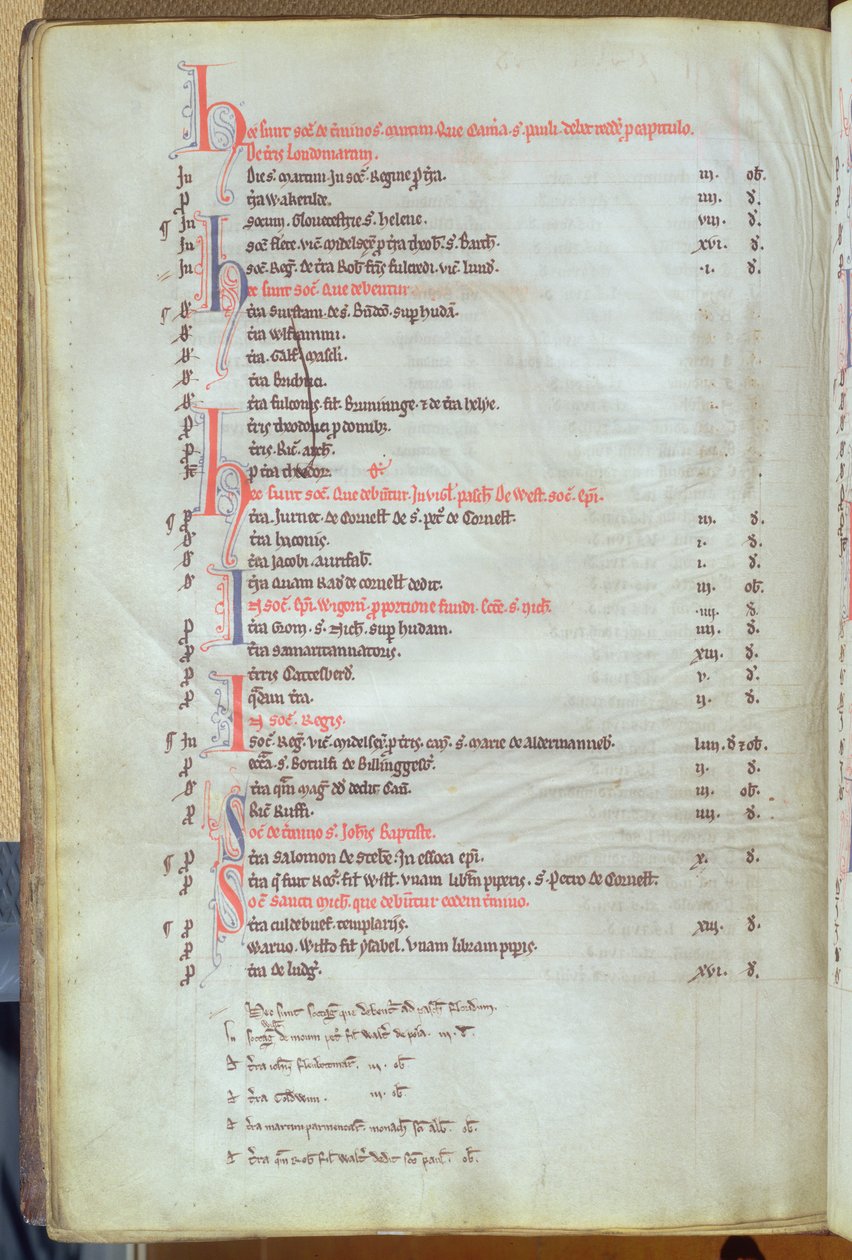 Hec sunt soc̄. de t̄mino s̄. martini. Que Cam̄a. s̄. pauli. debet redd̄e p capitulo.
De t̄ris Londoniarum.
In Die s̄. martini. In soc̄. Regine p t̄ra. iij. ob̄.
p t̄ra Wakerilde. iiij. d̄.
¶ In socum. Gloucestrie s̄. helene. viij. d̄.
In soc̄ flete. vic̄. midelsex̄. p t̄ra theob̄. s̄. Barth̄. xvi. d̄.
In soc̄. Reḡ. de t̄ra Rob̄ fr̄is fulcredi. vic̄. lund̄. .i. d̄.
Hec sunt soc̄. Que debentur.
¶ d̄ t̄ra surstani. de s̄. sup hudā.
d̄ t̄ra
d̄ t̄ra. Galf̄. mascli.
d̄ t̄ra Brichtici.
d̄ t̄ra fulconis. fil̄. Bruninge. ⁊ de t̄ra helye.
p t̄ris theodorici p domibꝫ.
p t̄ris. Ric̄. arch̄.
p t̄ra theodor̄. d̄.
Hec sunt soc̄. Que deb̄ntur. In vigl̄. pasch̄. De West. soc̄. ep̄i.
¶ p t̄ra. Jurnet. de Cornell̄. De s̄. pet̄. de Cornell̄. iij. d̄.
d̄ t̄ra baconis. i. d̄.
d̄ t̄ra Jacobi. aurifab̄. i. d̄.
d̄ t̄ra Quam Rad̄. de cornell̄ dedit. iij. ob̄.
In soc̄. ep̄i. Wigorn̄. p portione fundi. Ecc̄e. s̄. nich̄. .iiij. d̄.
p t̄ra Grom. s̄. Mich̄. sup hudam. iiij. d̄.
p t̄ra samaritannatoris. xiij. d̄.
p t̄ris Cattesberd̄. v. d̄.
p q̄dam t̄ra. ij. d̄.
In soc̄. Regis.
¶ p In soc̄. Reḡ. vic̄. midelsex̄. p t̄ris. can̄. s̄. marie de Aldermanneb̄. liiij. d̄ ⁊ ob̄.
p ecc̄a. s̄. Botulfi de Billinggesḡ. ij. d̄.
d̄ t̄ra qm̄ maḡ dd̄ dedit Can̄. iij. ob̄.
p Ric̄ Ruffi. iiij. d̄.
Soc̄ de t̄mino s̄. Joh̄is Baptiste.
¶ p t̄ra salomon de steb̄e. In essoca ep̄i. x. d̄.
p t̄ra q̄ fuit Roḡ. fil̄ Will̄. vnam libr̄m piperis. s̄. Petro de Cornell̄.
Soc̄ sancti mich̄. que deb̄ntur eodem t̄mino.
¶ p t̄ra culdebuef. templariis. xiij. d̄.
p Waruo. Will̄o fil̄ ysabel. vnam libram pip̄is.
p t̄ra de ludḡ. xvi. d̄.
Hec sunt soccaḡ que debent̄ ad pasch̄ floridum.
In soccaḡ will̄i de moun pet̄ fil̄ walt̄ de pola. iij. d̄.
d̄ t̄ra ioh̄is iij. ob̄
d̄ t̄ra Godwini. iij. ob̄
d̄ t̄ra martini parmentar̄. monach̄ sc̄i alb̄. ob̄.
d̄ t̄ra qm̄ Rob̄ fil̄ walt̄ dedit sc̄o paul̄. ob̄.